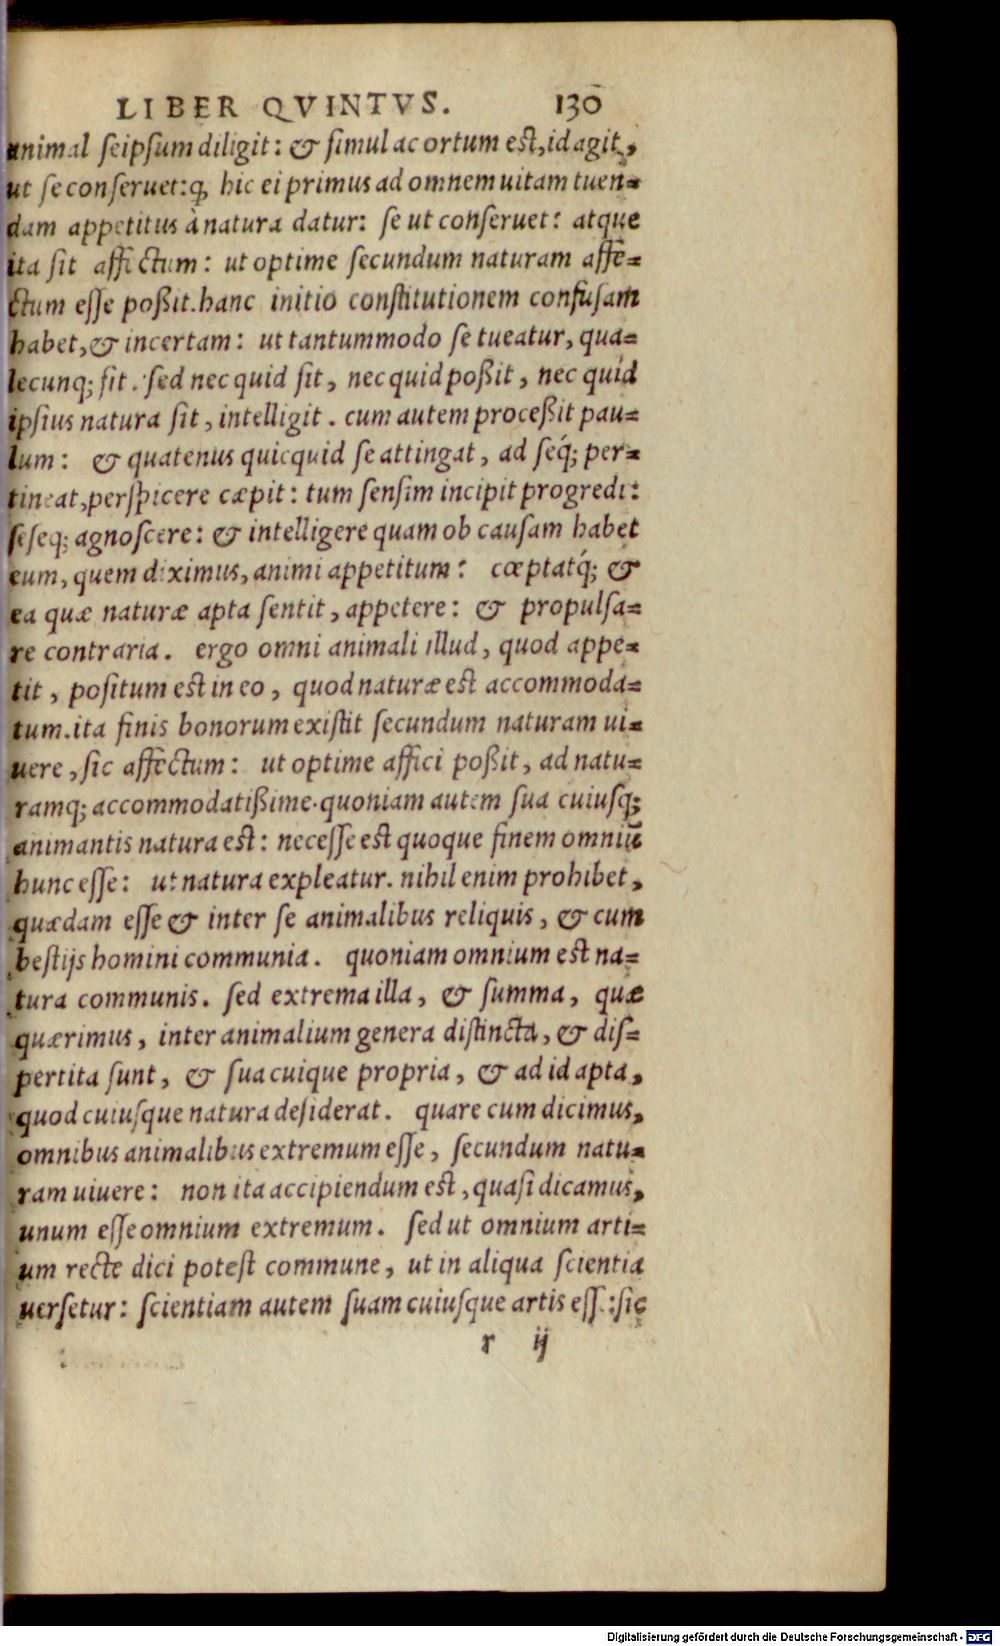 LIBER QVINTVS. 130
animal seipsum diligit: & simul ac ortum est, id agit,
ut se conseruet: q; hic ei primus ad omnem uitam tuen=
dam appetitus à natura datur: se ut conseruet: atque
ita sit affectum: ut optime secundum naturam affe=
ctum esse poßit. hanc initio constitutionem confusam
habet, & incertam: ut tantummodo se tueatur, qua=
lecunq; sit. sed nec quid sit, nec quid poßit, nec quid
ipsius natura sit, intelligit. cum autem proceßit pau=
lum: & quatenus quicquid se attingat, ad seq́; per=
tineat, perspicere cæpit: tum sensim incipit progredi:
seseq; agnoscere: & intelligere quam ob causam habet
eum, quem diximus, animi appetitum: cœptatq́; &
ea quæ naturæ apta sentit, appetere: & propulsa=
re contraria. ergo omni animali illud, quod appe=
tit, positum est in eo, quod naturæ est accommoda=
tum. ita finis bonorum existit secundum naturam ui=
uere, sic affectum: ut optime affici poßit, ad natu=
ramq; accommodatißime. quoniam autem sua cuiusq;
animantis natura est: necesse est quoque finem omniũ
hunc esse: ut natura expleatur. nihil enim prohibet,
quædam esse & inter se animalibus reliquis, & cum
bestijs homini communia. quoniam omnium est na=
tura communis. sed extrema illa, & summa, quæ
quærimus, inter animalium genera distincta, & dis=
pertita sunt, & sua cuique propria, & ad id apta,
quod cuiusque natura desiderat. quare cum dicimus,
omnibus animalibus extremum esse, secundum natu=
ram uiuere: non ita accipiendum est, quasi dicamus,
unum esse omnium extremum. sed ut omnium arti=
um recte dici potest commune, ut in aliqua scientia
uersetur: scientiam autem suam cuiusque artis esse: sic
r ij
Digitalisierung gefördert durch die Deutsche Forschungsgemeinschaft - DFG